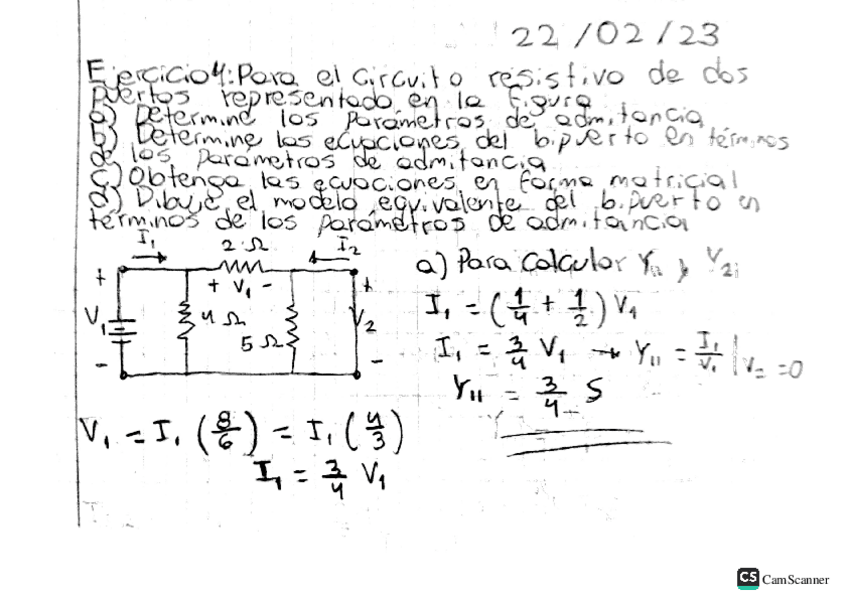 22/02/23
Ejercicio 4: Para el circuito resistivo de dos
puertos representado en la figura
a) Determine los parámetros de admitancia
b) Determine las ecuaciones del bipuerto en términos
de los parametros de admitancia
c) Obtenga las ecuaciones en forma matricial
d) Dibuje el modelo equivalente del bipuerto en
términos de los parámetros de admitancia
I₁ 2 Ω I₂
+ + V₁ - +
V₁ 4 Ω 5 Ω V₂
- -
a) Para calcular Y₁₁ y Y₂₁
I₁ = (1/4 + 1/2) V₁
I₁ = 3/4 V₁ → Y₁₁ = I₁/V₁ | V₂ = 0
Y₁₁ = 3/4 S
V₁ = I₁ (8/6) = I₁ (4/3)
I₁ = 3/4 V₁
CS CamScanner